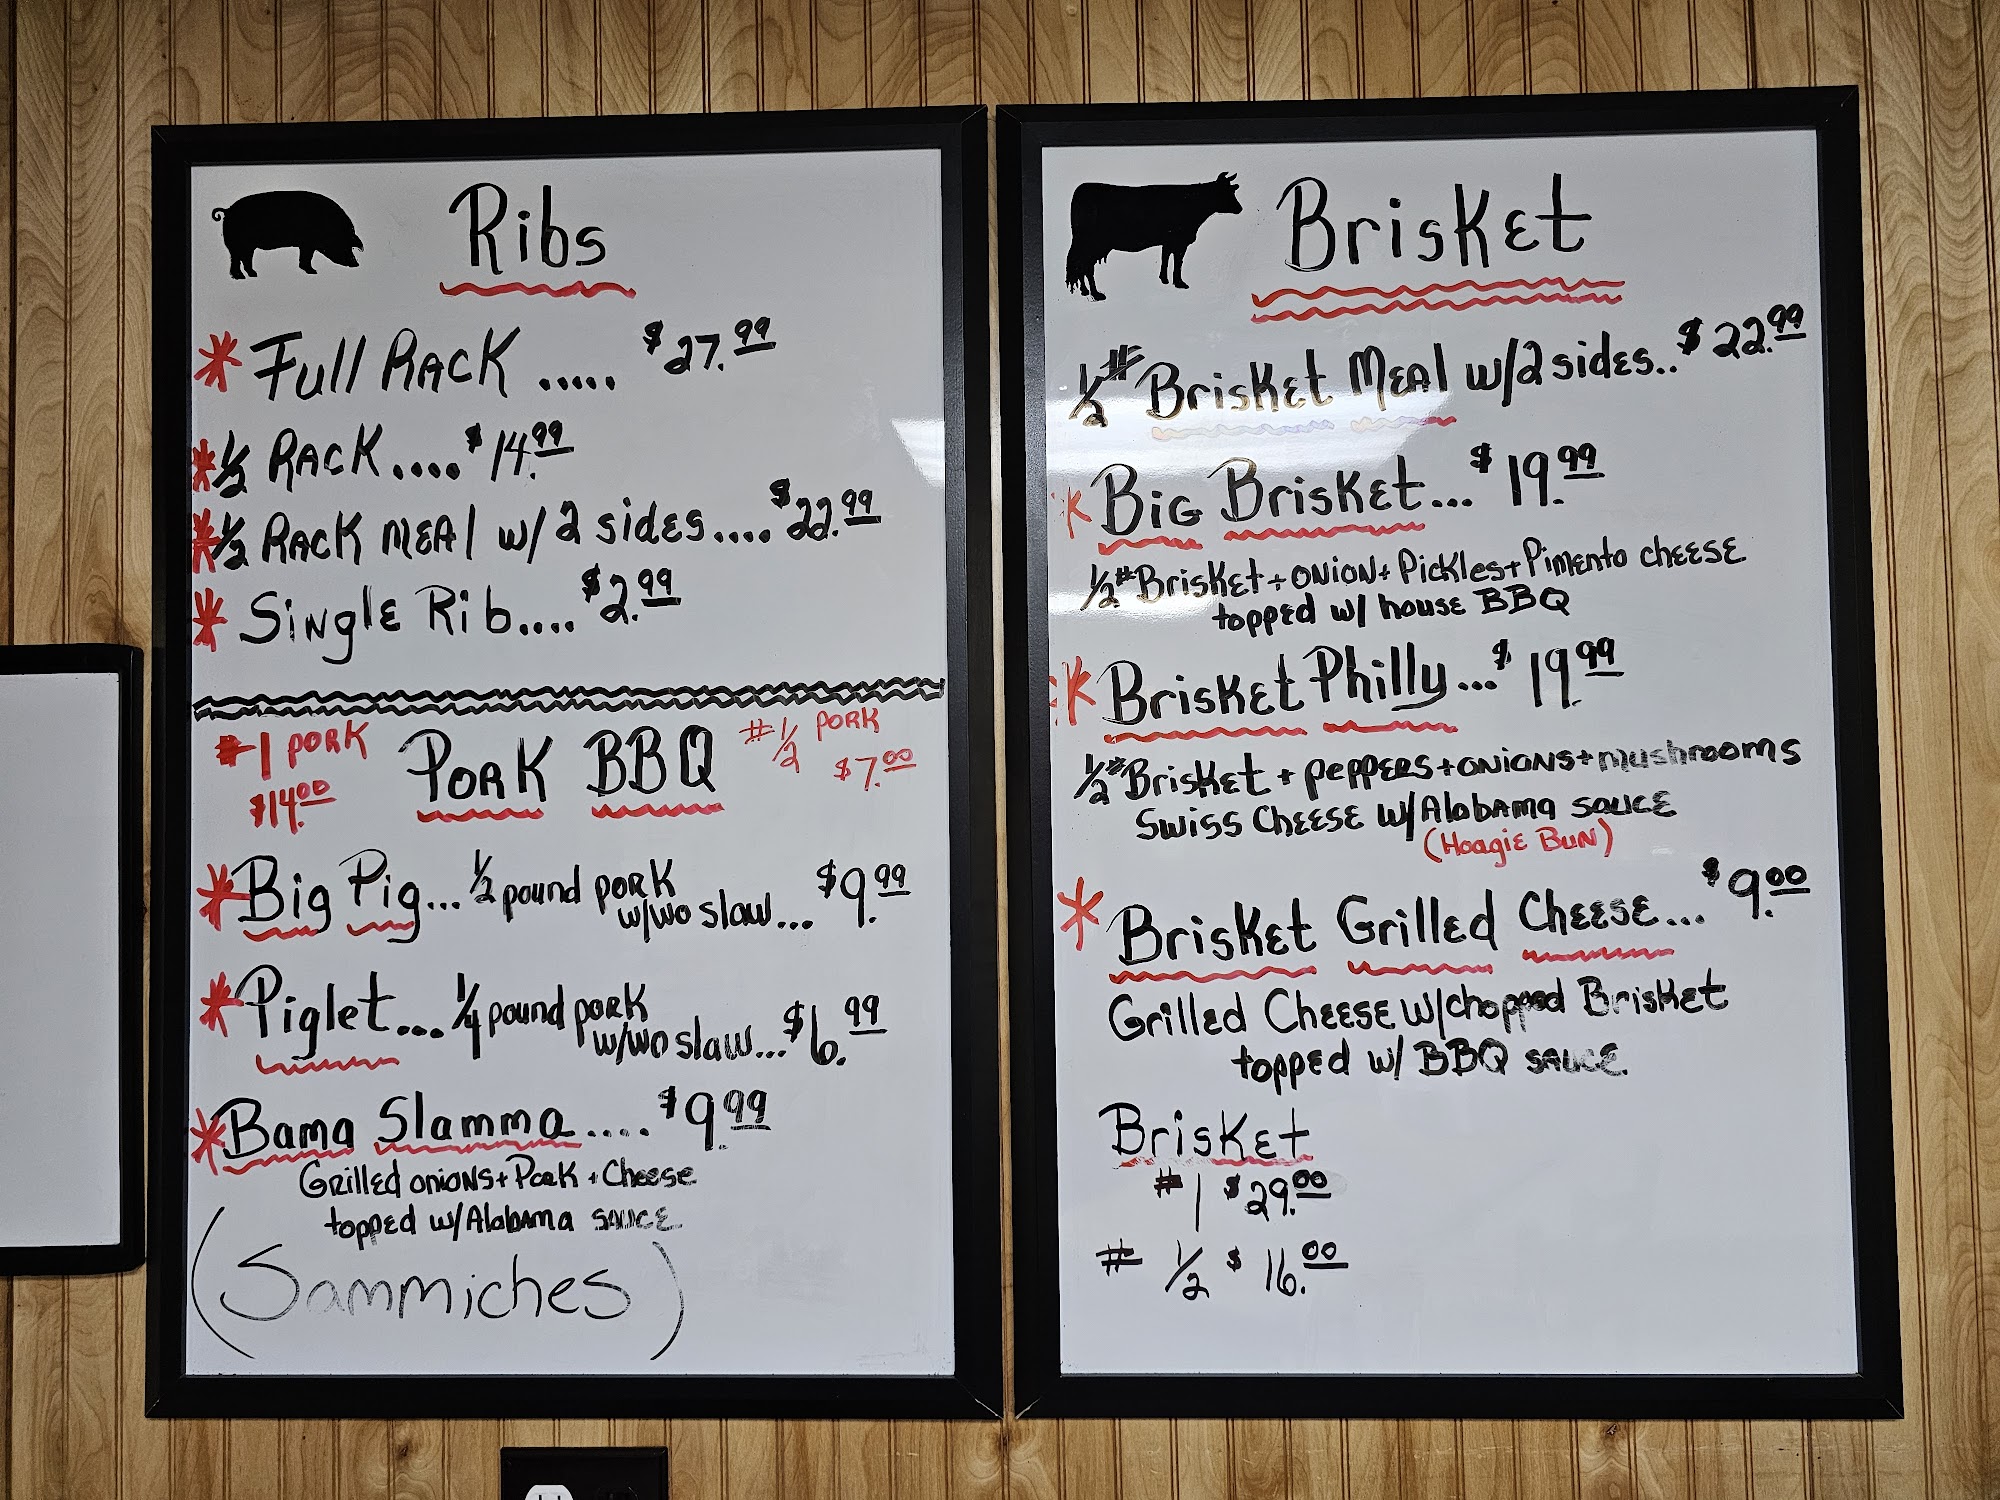 Ribs
* Full Rack ..... $27.99
* 1/2 Rack.... $14.99
* 1/2 Rack Meal w/ 2 sides.... $22.99
* Single Rib.... $2.99
#1 Pork
$14.00
Pork BBQ
#1/2 Pork
$7.00
* Big Pig... 1/2 pound pork
w/wo slaw... $9.99
* Piglet... 1/4 pound pork
w/wo slaw... $6.99
* Bama Slamma.... $9.99
Grilled onions + Pork + Cheese
topped w/ Alabama sauce
(Sammiches)
Brisket
1/2# Brisket Meal w/2 sides.. $22.99
* Big Brisket... $19.99
1/2# Brisket + onion + Pickles + Pimento cheese
topped w/ house BBQ
* Brisket Philly... $19.99
1/2# Brisket + peppers + onions + mushrooms
Swiss Cheese w/ Alabama sauce
(Hoagie Bun)
* Brisket Grilled Cheese... $9.00
Grilled Cheese w/chopped Brisket
topped w/ BBQ sauce
Brisket
#1 $29.00
# 1/2 $16.00